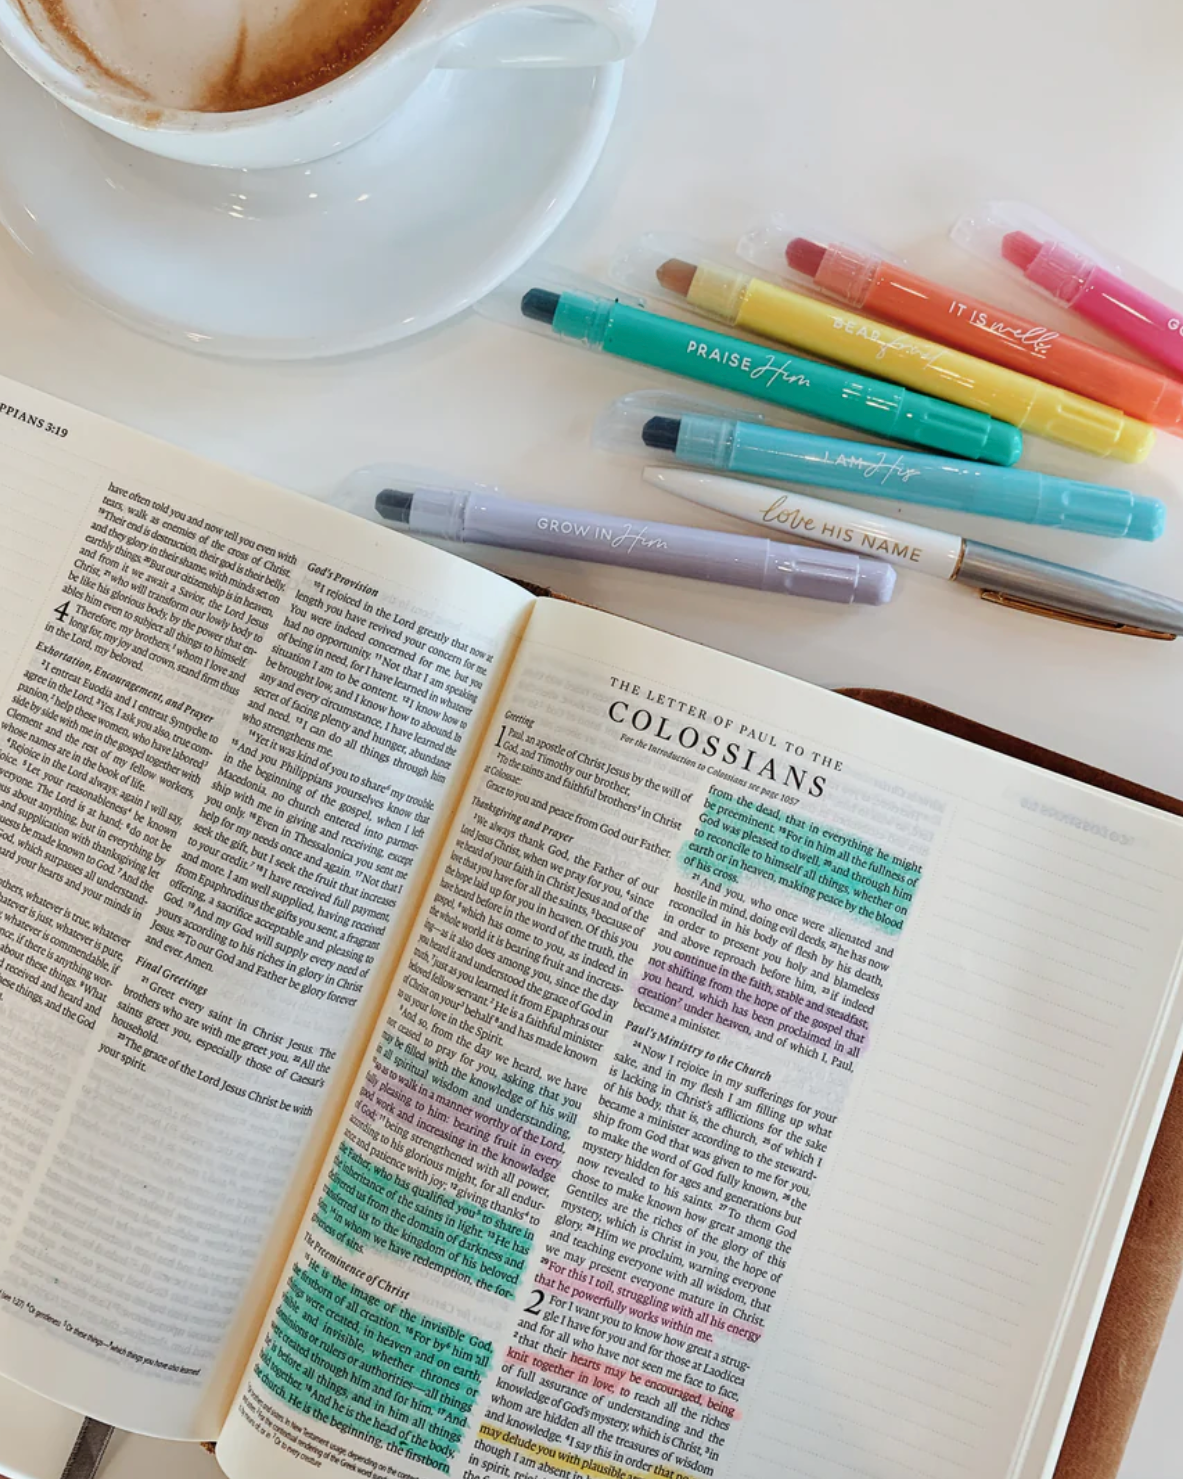 PRAISE Him
BEAR fruit
IT IS well
I AM His
love HIS NAME
GROW IN Him
PPIANS 3:19
have often told you and now tell you even with
tears, walk as enemies of the cross of Christ.
19Their end is destruction, their god is their belly,
and they glory in their shame, with minds set on
earthly things. 20But our citizenship is in heaven,
and from it we await a Savior, the Lord Jesus
Christ, 21who will transform our lowly body to
be like his glorious body, by the power that en-
ables him even to subject all things to himself.
4 Therefore, my brothers, whom I love and
long for, my joy and crown, stand firm thus
in the Lord, my beloved.
Exhortation, Encouragement, and Prayer
2I entreat Euodia and I entreat Syntyche to
agree in the Lord. 3Yes, I ask you also, true com-
panion, help these women, who have labored
side by side with me in the gospel together with
Clement and the rest of my fellow workers,
whose names are in the book of life.
4Rejoice in the Lord always; again I will say,
5Let your reasonableness be known
everyone. The Lord is at hand; 6do not be
about anything, but in everything by
and supplication with thanksgiving let
be made known to God. 7And the
God, which surpasses all understand-
your hearts and your minds in
whatever is true, whatever
whatever is just, whatever is pure,
whatever is commendable, if
if there is anything wor-
about these things. 9What
received and heard and
these things, and the God
God's Provision
10I rejoiced in the Lord greatly that now at
length you have revived your concern for me.
You were indeed concerned for me, but you
had no opportunity. 11Not that I am speaking
of being in need, for I have learned in whatever
situation I am to be content. 12I know how to
be brought low, and I know how to abound. In
any and every circumstance, I have learned the
secret of facing plenty and hunger, abundance
and need. 13I can do all things through him
who strengthens me.
14Yet it was kind of you to share my trouble.
15And you Philippians yourselves know that
in the beginning of the gospel, when I left
Macedonia, no church entered into partner-
ship with me in giving and receiving, except
you only. 16Even in Thessalonica you sent me
help for my needs once and again. 17Not that I
seek the gift, but I seek the fruit that increases
to your credit. 18I have received full payment,
and more. I am well supplied, having received
from Epaphroditus the gifts you sent, a fragrant
offering, a sacrifice acceptable and pleasing to
God. 19And my God will supply every need of
yours according to his riches in glory in Christ
Jesus. 20To our God and Father be glory forever
and ever. Amen.
Final Greetings
21Greet every saint in Christ Jesus. The
brothers who are with me greet you. 22All the
saints greet you, especially those of Caesar's
household.
23The grace of the Lord Jesus Christ be with
your spirit.
THE LETTER OF PAUL TO THE
COLOSSIANS
For the Introduction to Colossians see page 1057
Greeting
1 Paul, an apostle of Christ Jesus by the will of
God, and Timothy our brother,
2To the saints and faithful brothers in Christ
at Colossae:
Grace to you and peace from God our Father.
Thanksgiving and Prayer
3We always thank God, the Father of our
Lord Jesus Christ, when we pray for you, 4since
we heard of your faith in Christ Jesus and of the
love that you have for all the saints, 5because of
the hope laid up for you in heaven. Of this you
have heard before in the word of the truth, the
gospel, 6which has come to you, as indeed in
the whole world it is bearing fruit and increas-
ing—as it also does among you, since the day
you heard it and understood the grace of God in
truth, 7just as you learned it from Epaphras our
beloved fellow servant. He is a faithful minister
of Christ on your behalf 8and has made known
to us your love in the Spirit.
9And so, from the day we heard, we have
not ceased to pray for you, asking that you
may be filled with the knowledge of his will
in all spiritual wisdom and understanding,
10so as to walk in a manner worthy of the Lord,
fully pleasing to him: bearing fruit in every
good work and increasing in the knowledge
of God; 11being strengthened with all power,
according to his glorious might, for all endur-
ance and patience with joy; 12giving thanks to
the Father, who has qualified you to share in
the inheritance of the saints in light. 13He has
delivered us from the domain of darkness and
transferred us to the kingdom of his beloved
Son, 14in whom we have redemption, the for-
giveness of sins.
The Preeminence of Christ
15He is the image of the invisible God,
the firstborn of all creation. 16For by him all
things were created, in heaven and on earth,
visible and invisible, whether thrones or
dominions or rulers or authorities—all things
were created through him and for him. 17And
he is before all things, and in him all things
hold together. 18And he is the head of the body,
the church. He is the beginning, the firstborn
from the dead, that in everything he might
be preeminent. 19For in him all the fullness of
God was pleased to dwell, 20and through him
to reconcile to himself all things, whether on
earth or in heaven, making peace by the blood
of his cross.
21And you, who once were alienated and
hostile in mind, doing evil deeds, 22he has now
reconciled in his body of flesh by his death,
in order to present you holy and blameless
and above reproach before him, 23if indeed
you continue in the faith, stable and steadfast,
not shifting from the hope of the gospel that
you heard, which has been proclaimed in all
creation under heaven, and of which I, Paul,
became a minister.
Paul's Ministry to the Church
24Now I rejoice in my sufferings for your
sake, and in my flesh I am filling up what
is lacking in Christ's afflictions for the sake
of his body, that is, the church, 25of which I
became a minister according to the steward-
ship from God that was given to me for you,
to make the word of God fully known, 26the
mystery hidden for ages and generations but
now revealed to his saints. 27To them God
chose to make known how great among the
Gentiles are the riches of the glory of this
mystery, which is Christ in you, the hope of
glory. 28Him we proclaim, warning everyone
and teaching everyone with all wisdom, that
we may present everyone mature in Christ.
29For this I toil, struggling with all his energy
that he powerfully works within me.
2 For I want you to know how great a strug-
gle I have for you and for those at Laodicea
and for all who have not seen me face to face,
2that their hearts may be encouraged, being
knit together in love, to reach all the riches
of full assurance of understanding and the
knowledge of God's mystery, which is Christ, 3in
whom are hidden all the treasures of wisdom
and knowledge. 4I say this in order that no
may delude you with plausible
though I am absent in
in spirit,